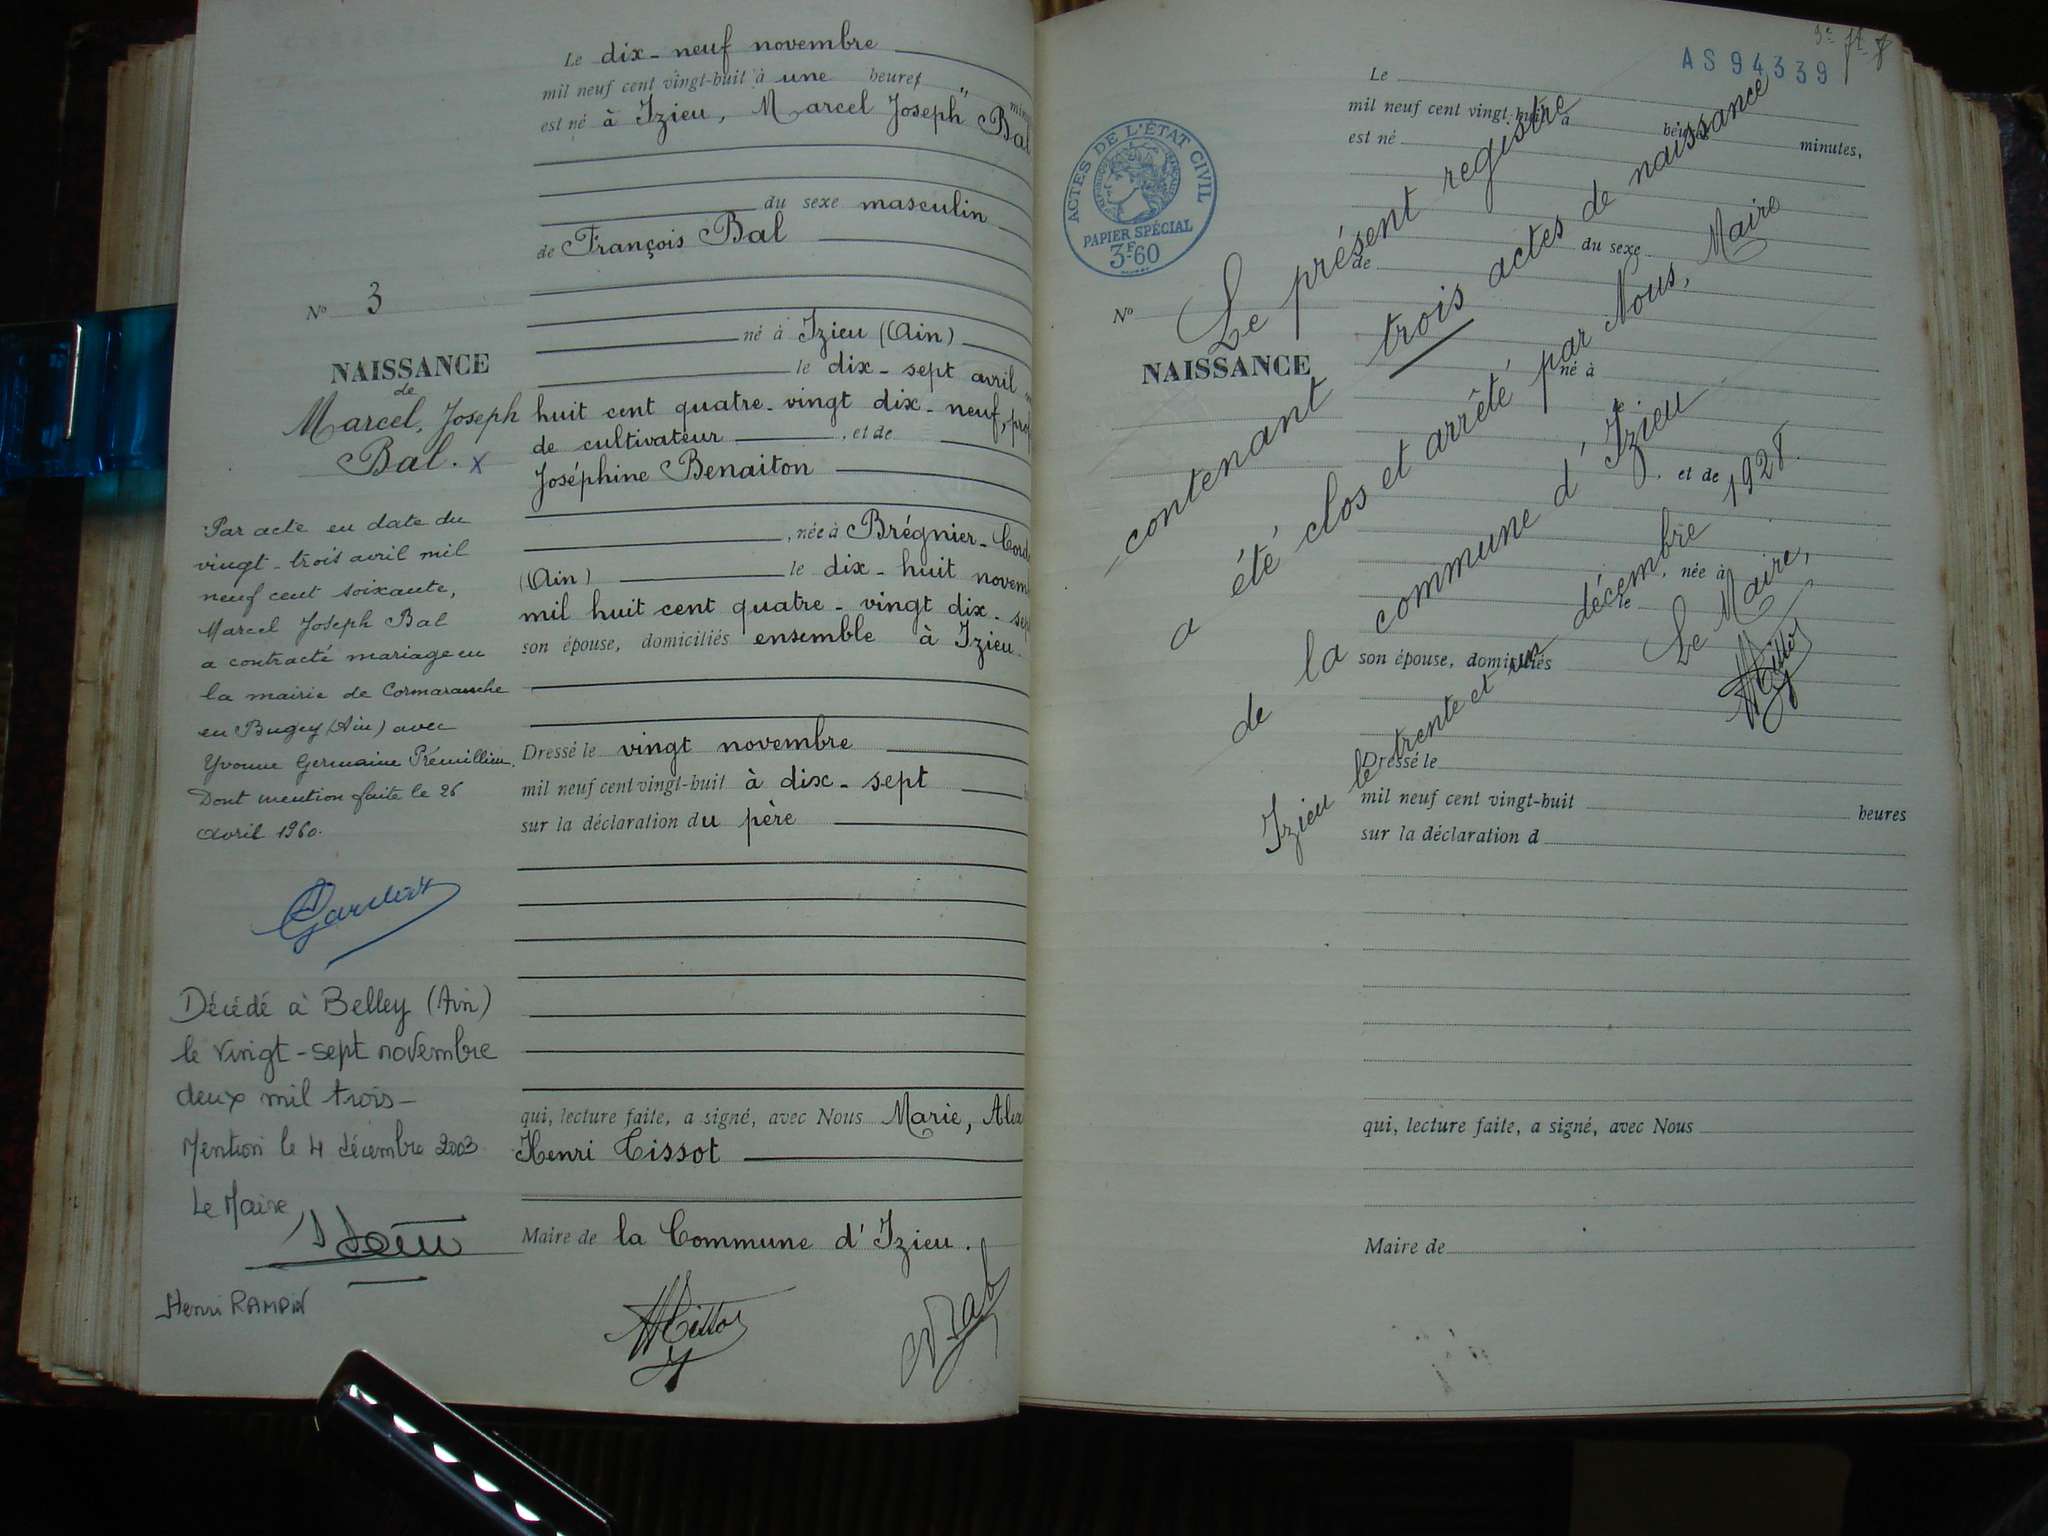 Le dix-neuf novembre
mil neuf cent vingt-huit à une heures "
est né à Izieu, Marcel Joseph Bal
du sexe masculin
de François Bal
N° 3
né à Izieu (Ain)
le dix-sept avril
NAISSANCE
de
Marcel, Joseph
Bal. x
huit cent quatre-vingt dix-neuf, prof
de cultivateur, et de
Joséphine Benaiton
, née à Brégnier-Cord
(Ain) le dix-huit novem
mil huit cent quatre-vingt dix-sep
son épouse, domiciliés ensemble à Izieu.
Dressé le vingt novembre
mil neuf cent vingt-huit à dix-sept
sur la déclaration du père
qui, lecture faite, a signé, avec Nous Marie, Alex
Henri Tissot
Maire de la Commune d'Izieu.
HTissot
Bal
Par acte en date du
vingt-trois avril mil
neuf cent soixante,
Marcel Joseph Bal
a contracté mariage en
la mairie de Cormaranche
en Bugey (Ain) avec
Yvonne Germaine Prémillieu.
Dont mention faite le 26
avril 1960.
Décédé à Belley (Ain)
le vingt-sept novembre
deux mil trois-
Mention le 4 décembre 2003
Le Maire
Henri RAMPIN
AS 94339
ACTES DE L'ÉTAT CIVIL
PAPIER SPÉCIAL
3F.60
Le
mil neuf cent vingt-huit à heures
minutes,
est né
du sexe
de
N°
NAISSANCE
né à
le
, et de
, née à
le
son épouse, domiciliés
Dressé le
mil neuf cent vingt-huit heures
sur la déclaration d
qui, lecture faite, a signé, avec Nous
Maire de
Le présent registre
contenant trois actes de naissance
a été clos et arrêté par Nous, Maire
de la commune d'Izieu
Izieu le trente et un décembre 1928.
Le Maire,
HTissot